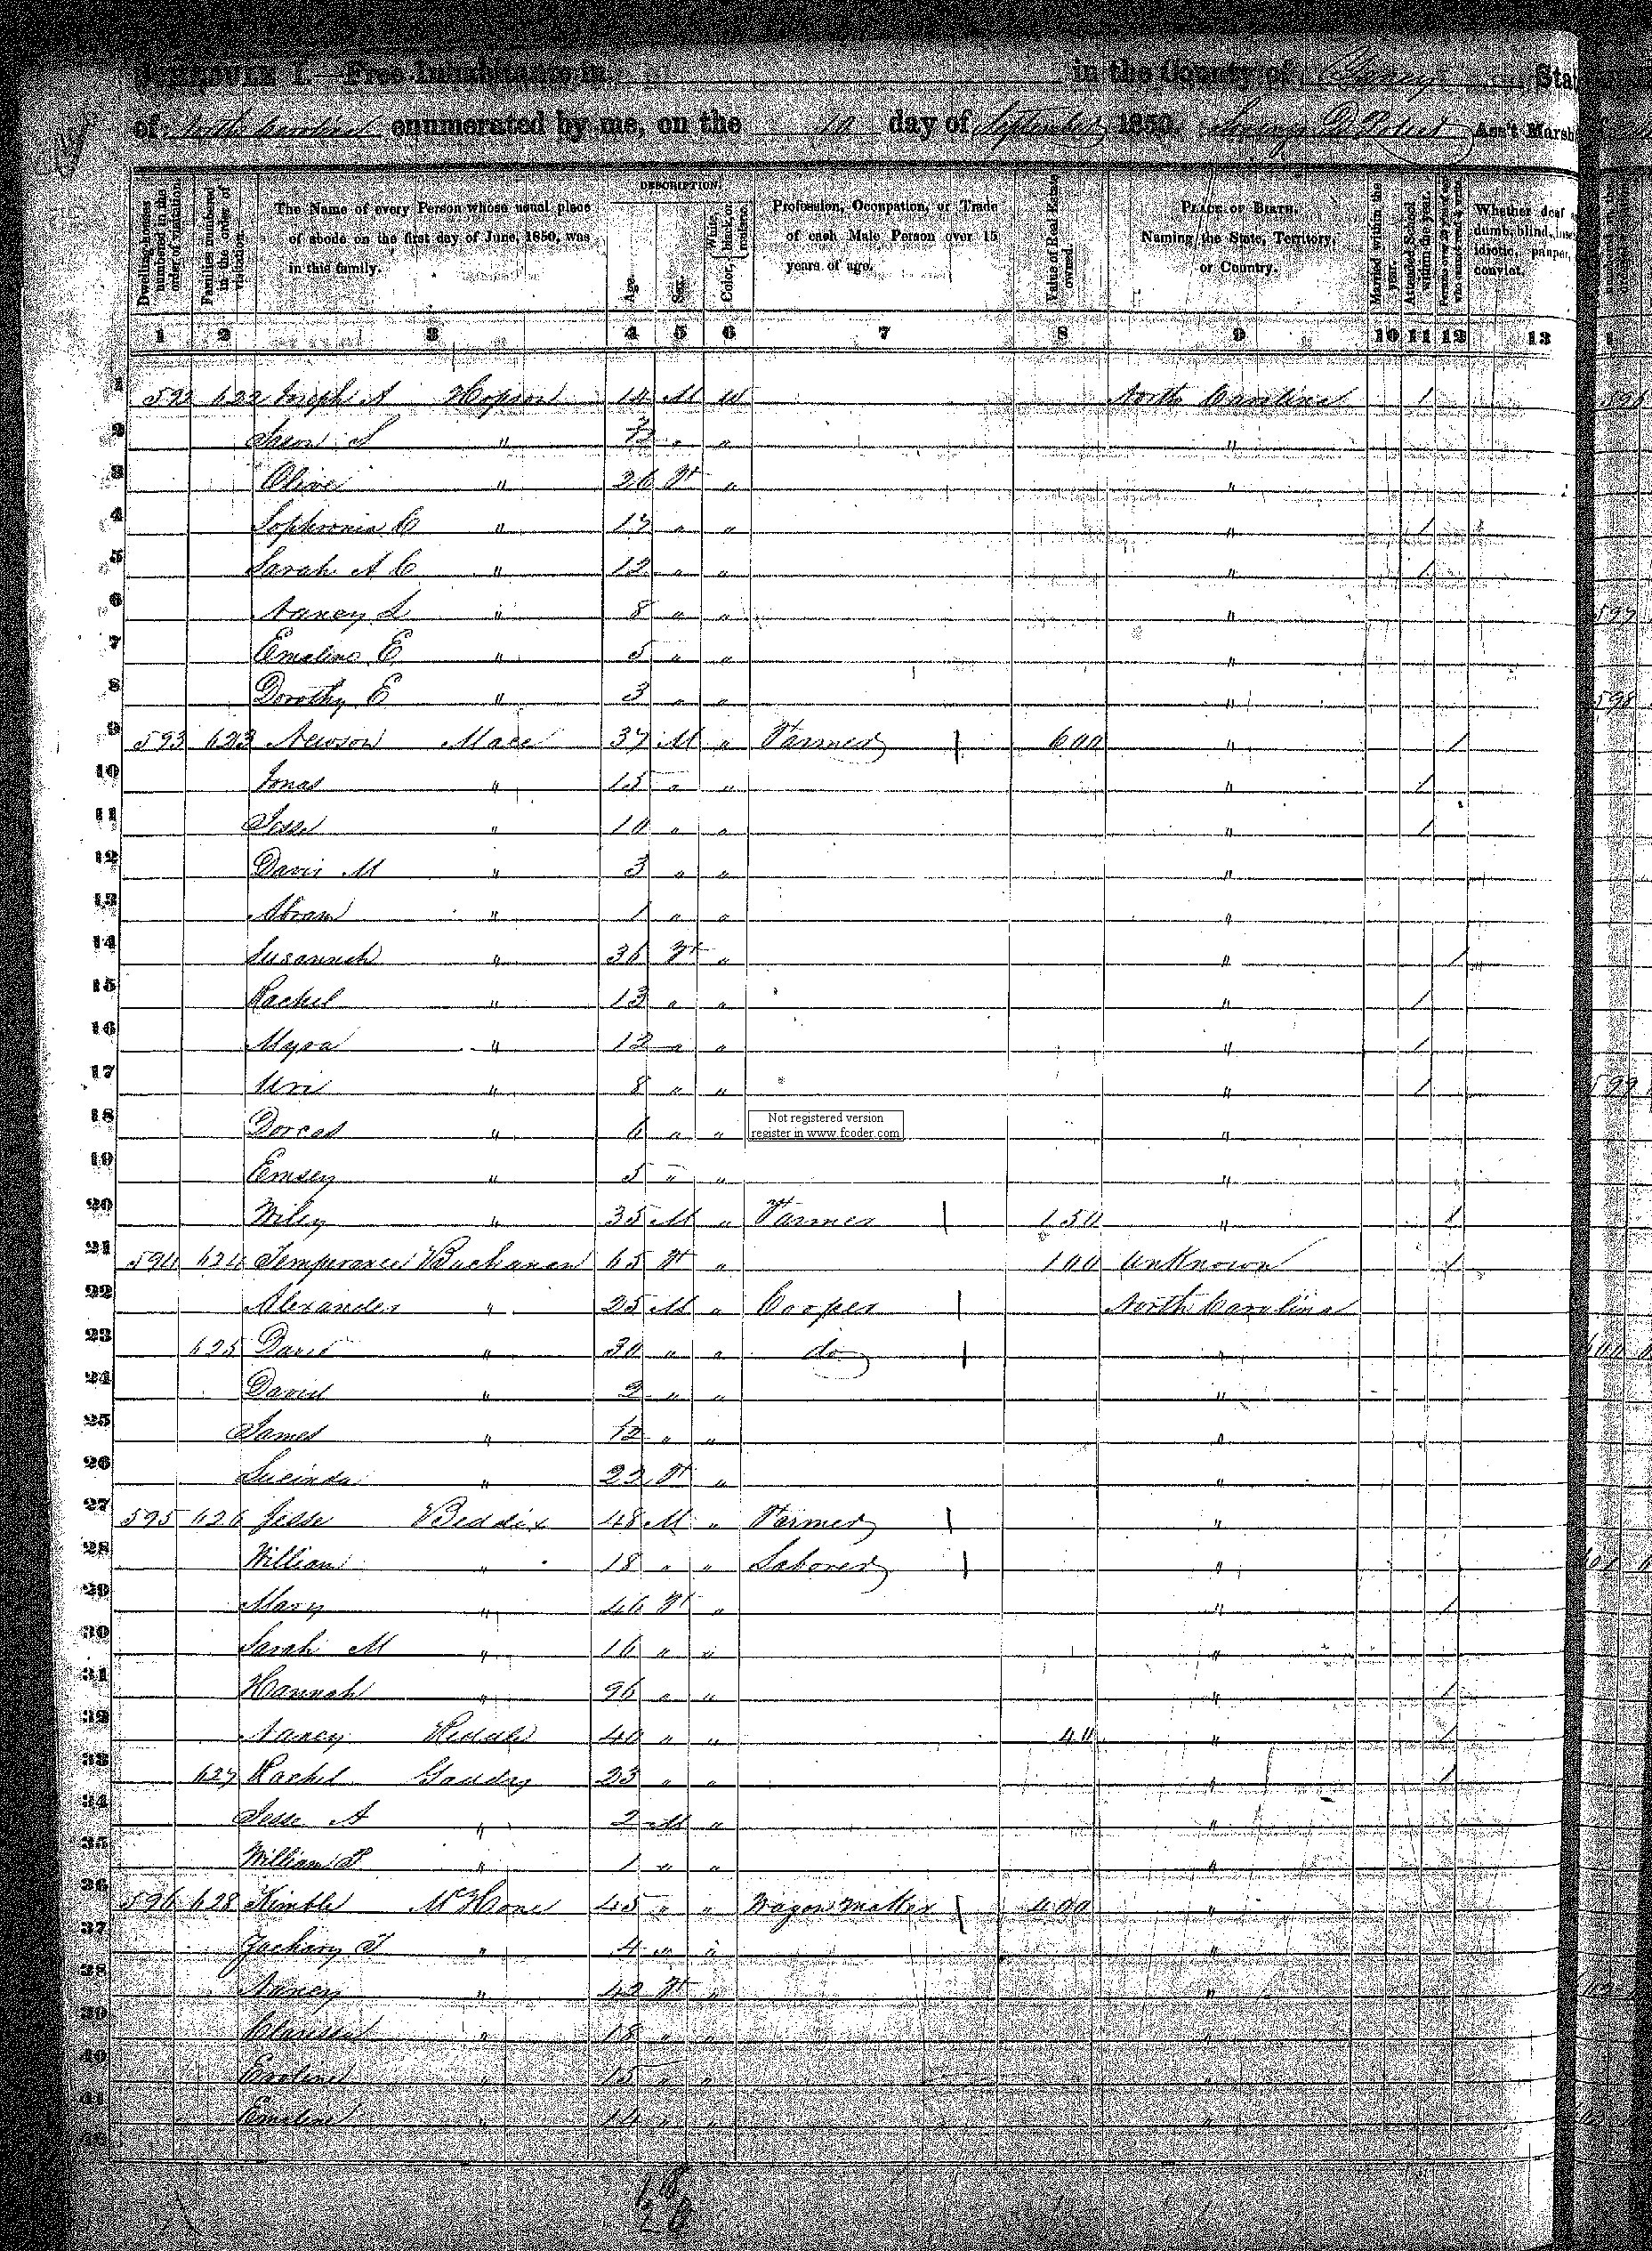 SCHEDULE I.—Free Inhabitants in in the County of Yancy State
of North Carolina enumerated by me, on the 10 day of September 1850. Ass't Marsh
Dwelling-houses numbered in the order of visitation.
Families numbered in the order of visitation.
The Name of every Person whose usual place of abode on the first day of June, 1850, was in this family.
DESCRIPTION.
Age.
Sex.
Color, White, black, or mulatto.
Profession, Occupation, or Trade of each Male Person over 15 years of age.
Value of Real Estate owned.
PLACE OF BIRTH. Naming the State, Territory, or Country.
Married within the year.
Attended School within the year.
Persons over 20 y'rs of age who cannot read & write.
Whether deaf dumb, blind, insane idiotic, pauper, convict.
1 2 3 4 5 6 7 8 9 10 11 12 13 1
1 592 622 Joseph A Hopson 14 M W North Carolina 1
2 " 3/12 " " "
3 Olive " 26 F " "
4 Sophronia C " 13 " " " 1
5 Sarah A C " 12 " " " 1
6 Nancy L " 8 " " "
7 Emeline E " 5 " " "
8 Dorothy E " 3 " " "
9 593 623 Newson Mace 37 M " Farmer 600 " 1
10 Jonas " 15 " " " 1
11 Jesse " 10 " " " 1
12 Davis M " 3 " " "
13 Abram " 1 " " "
14 Susannah " 36 F " " 1
15 Rachel " 13 " " " 1
16 Myra " 12 " " " 1
17 Uri " 8 " " " 1
18 Dorcas " 6 " " "
Not registered version
register in www.fcoder.com
19 Emsey " 5 " " "
20 Wiley " 35 M " Farmer 150 " 1
21 594 624 Temperance Buchanan 65 F " 100 Unknown 1
22 Alexander " 25 M " Cooper North Carolina
23 625 " 30 " " do "
24 David " 2 " " "
25 James " /12 " " "
26 Lucinda " 22 F " "
27 595 626 Jesse Beddix 48 M " Farmer "
28 William " 18 " " Laborer "
29 Mary " 46 F " " 1
30 Sarah M " 16 " " "
31 Hannah " 96 " " " 1
32 Nancy 40 " " 40 " 1
33 627 Rachel Gouldy 23 " " " 1
34 Jesse A " 2 M " "
35 William " 1 " " "
36 596 628 Kimble McHone 45 " " Wagon maker 400 "
37 Zachary T " 4 " " "
38 Nancy " 42 F " "
39 Clarissa " 18 " " "
40 Eveline " 15 " " "
41 Emeline " 14 " " "
42